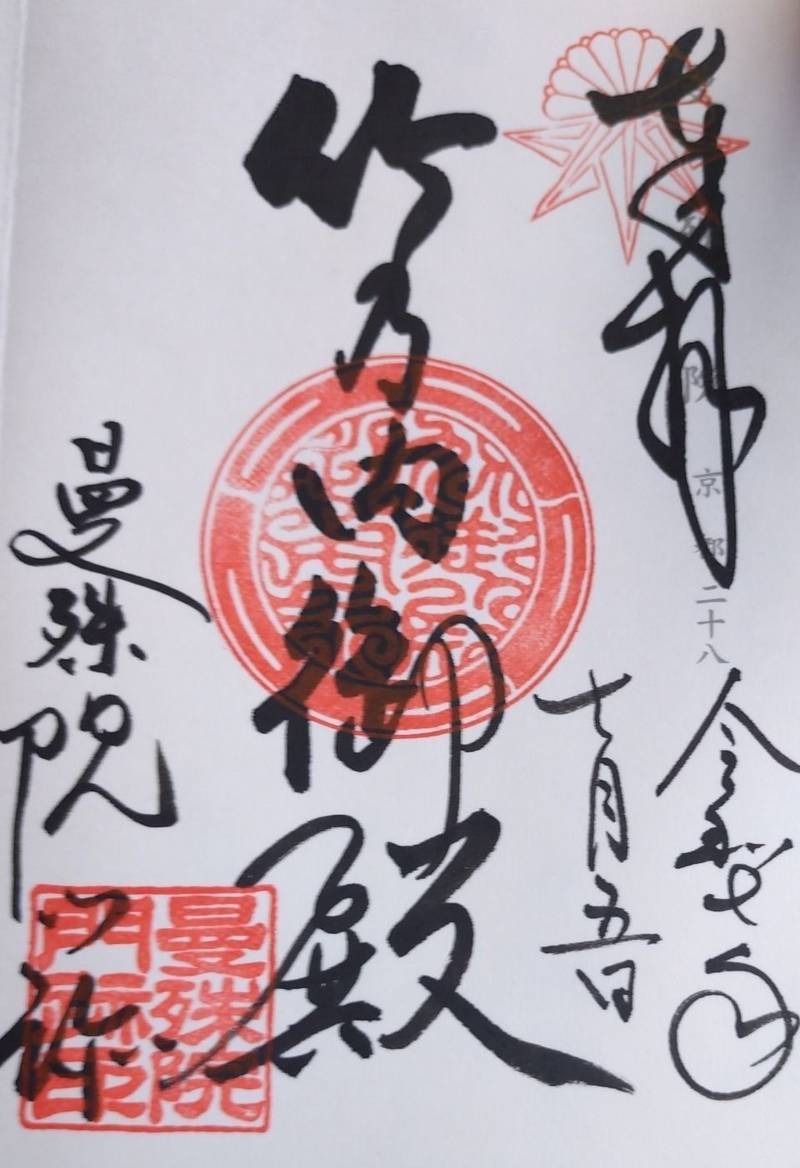 奉拝
院 京都二十八
令和七年
十月五日
竹乃内御殿
曼殊院
門跡
曼殊院
門跡印